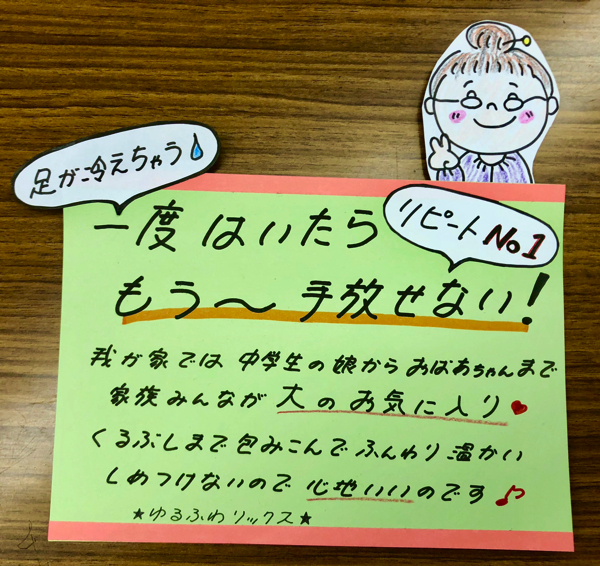 足が冷えちゃう
リピート No.1
一度はいたら
もう〜手放せない!
我が家では中学生の娘からおばあちゃんまで
家族みんなが大のお気に入り♥
くるぶしまで包みこんでふんわり温かい
しめつけないので心地いいのです♪
★ゆるふわソックス★